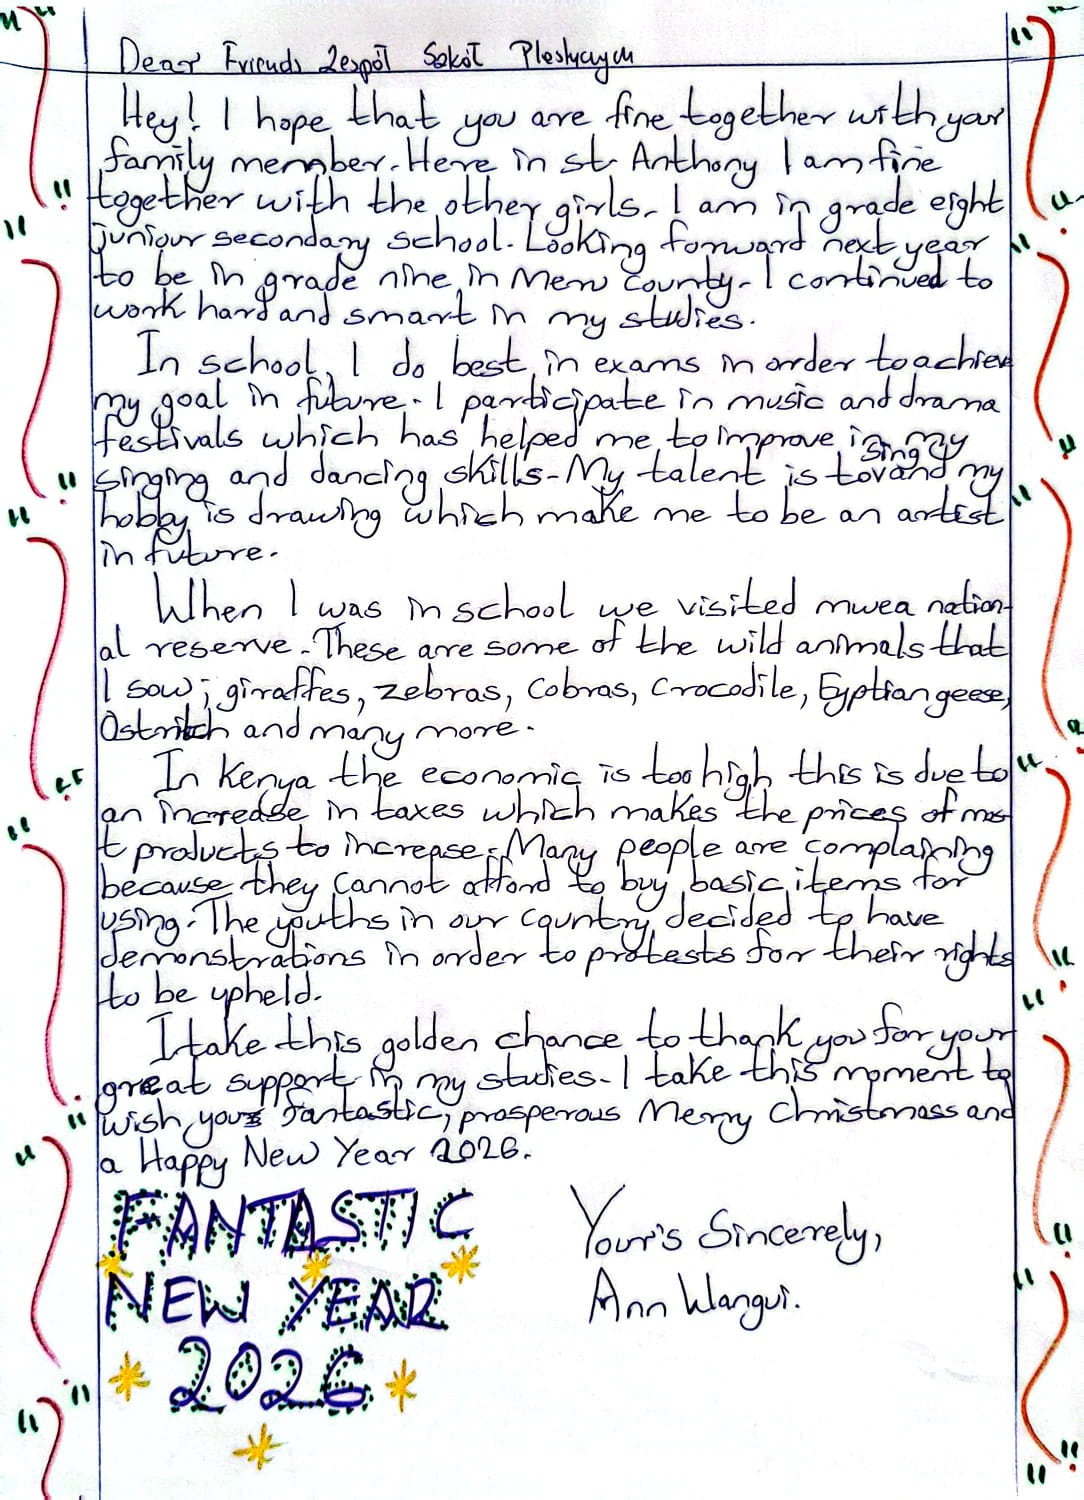 Dear Friends Zespół Szkół Plastycznych
Hey! I hope that you are fine together with your
family member. Here in st. Anthony I am fine
together with the other girls. I am in grade eight
juniour secondary school. Looking forward next year
to be in grade nine in Meru county. I continued to
work hard and smart in my studies.
In school, I do best in exams in order to achieve
my goal in future. I participate in music and drama
festivals which has helped me to improve in my
singing and dancing skills. My talent is to sing and my
hobby is drawing which make me to be an artist
in future.
When I was in school we visited mwea nation-
al reserve. These are some of the wild animals that
I sow; giraffes, zebras, Cobras, Crocodile, Eyptian geese,
Ostritch and many more.
In Kenya the economic is too high this is due to
an increase in taxes which makes the prices of mos
t products to increase. Many people are complaining
because they cannot afford to buy basic items for
using. The youths in our country decided to have
demonstrations in order to protests for their rights
to be upheld.
I take this golden chance to thank you for your
great support in my studies. I take this moment to
wish you fantastic, prosperous Merry Christmass and
a Happy New Year 2026.
FANTASTIC
NEW YEAR
2026
Your's Sincerely,
Ann Wangui.